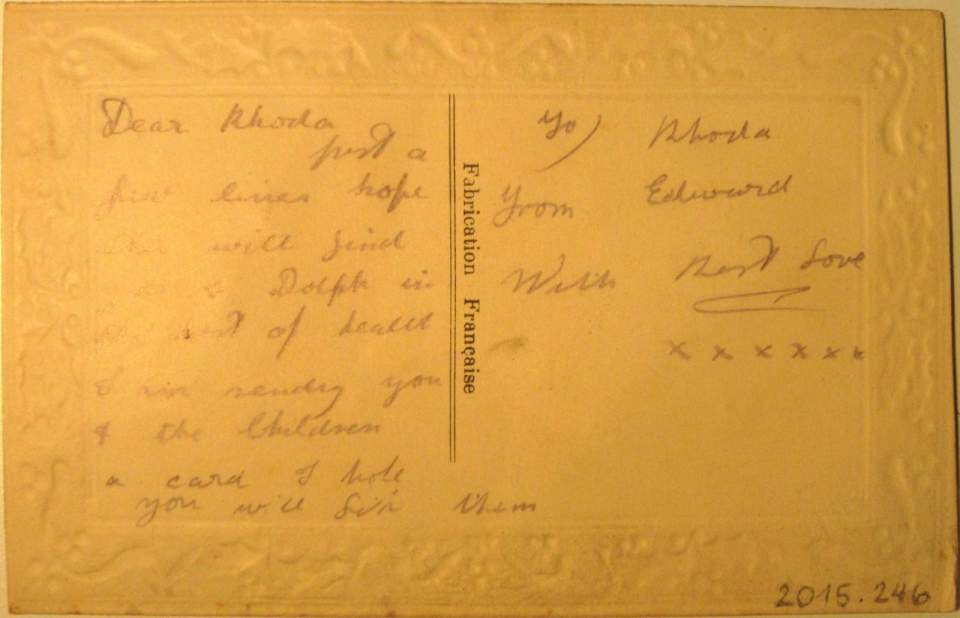 Dear Rhoda
just a
few lines hope
this will find
you & Dolph in
the best of health
I am sending you
& the Children
a card I hope
you will like them
Fabrication Française
To) Rhoda
From Edward
With Best Love
x x x x x x
2015.246